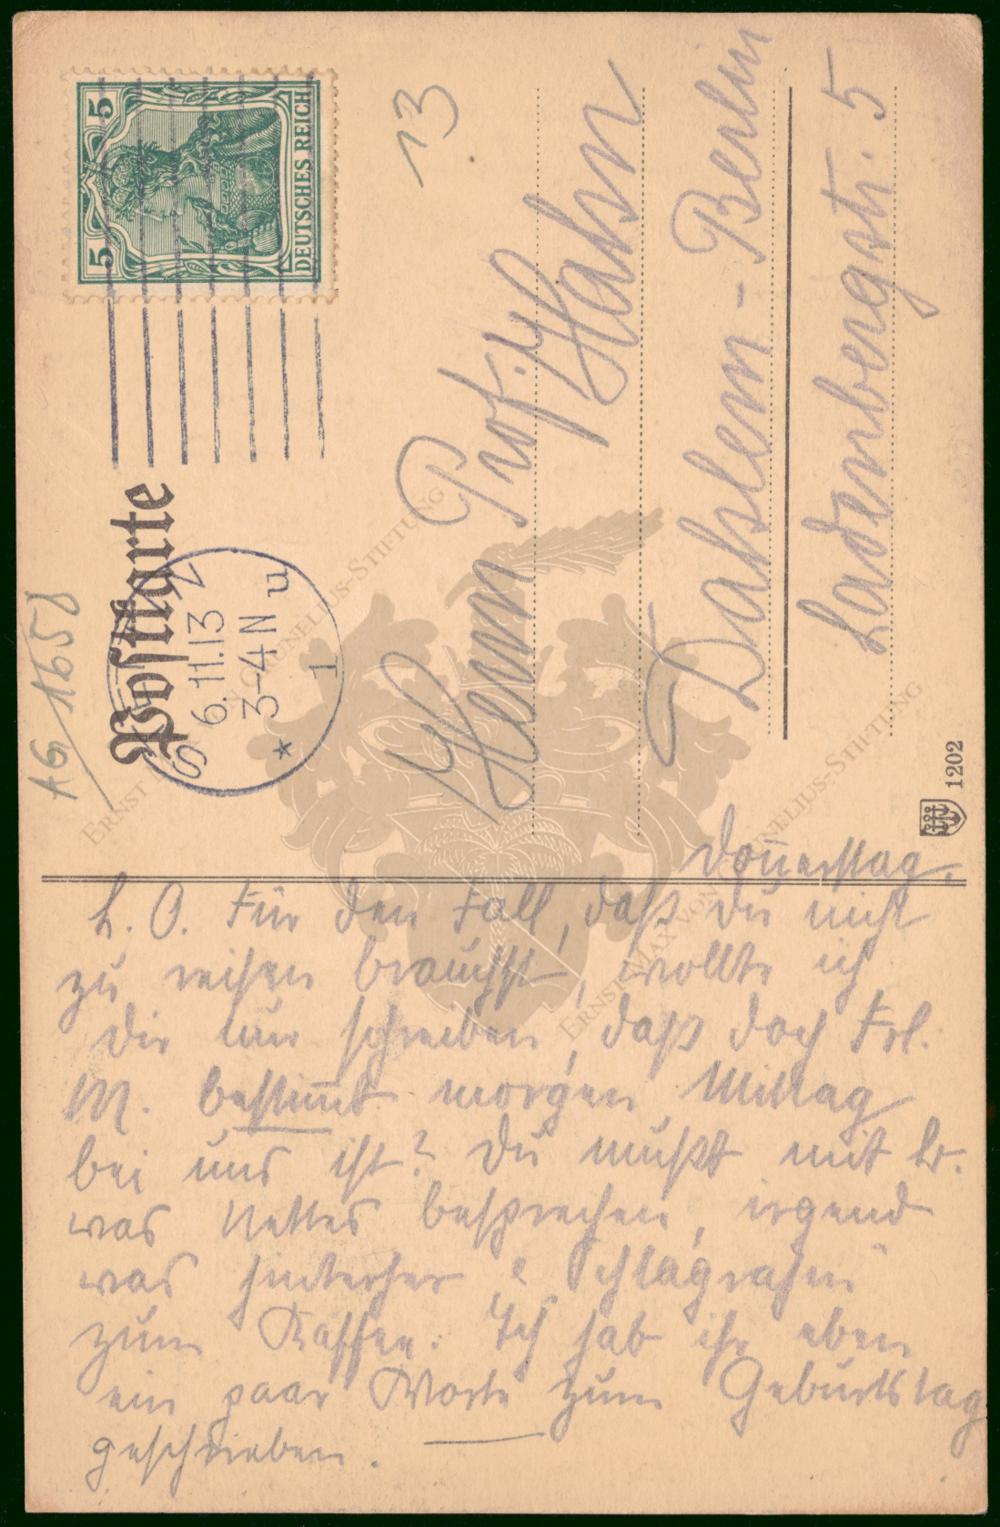 AG 1658
Postkarte
5 5
DEUTSCHES REICH
6.11.13
3-4 N
* 1 u
13
Herrn Prof. Hahn
Dahlem-Berlin
Ladenbergstr. 5
1202
ERNST MAX VON GRUNELIUS-STIFTUNG
ERNST MAX VON GRUNELIUS-STIFTUNG
Donnerstag.
L. O. Für den Fall, daß du nicht
zu reisen brauchst, wollte ich
dir nur schreiben, daß doch Frl.
M. bestimmt morgen Mittag
bei uns ist? Du mußt mit
was Nettes besprechen, irgend
was hinterher Schlagrahm
zum Kaffee. Ich hab ihr eben
ein paar Worte zum Geburtstag
geschrieben.